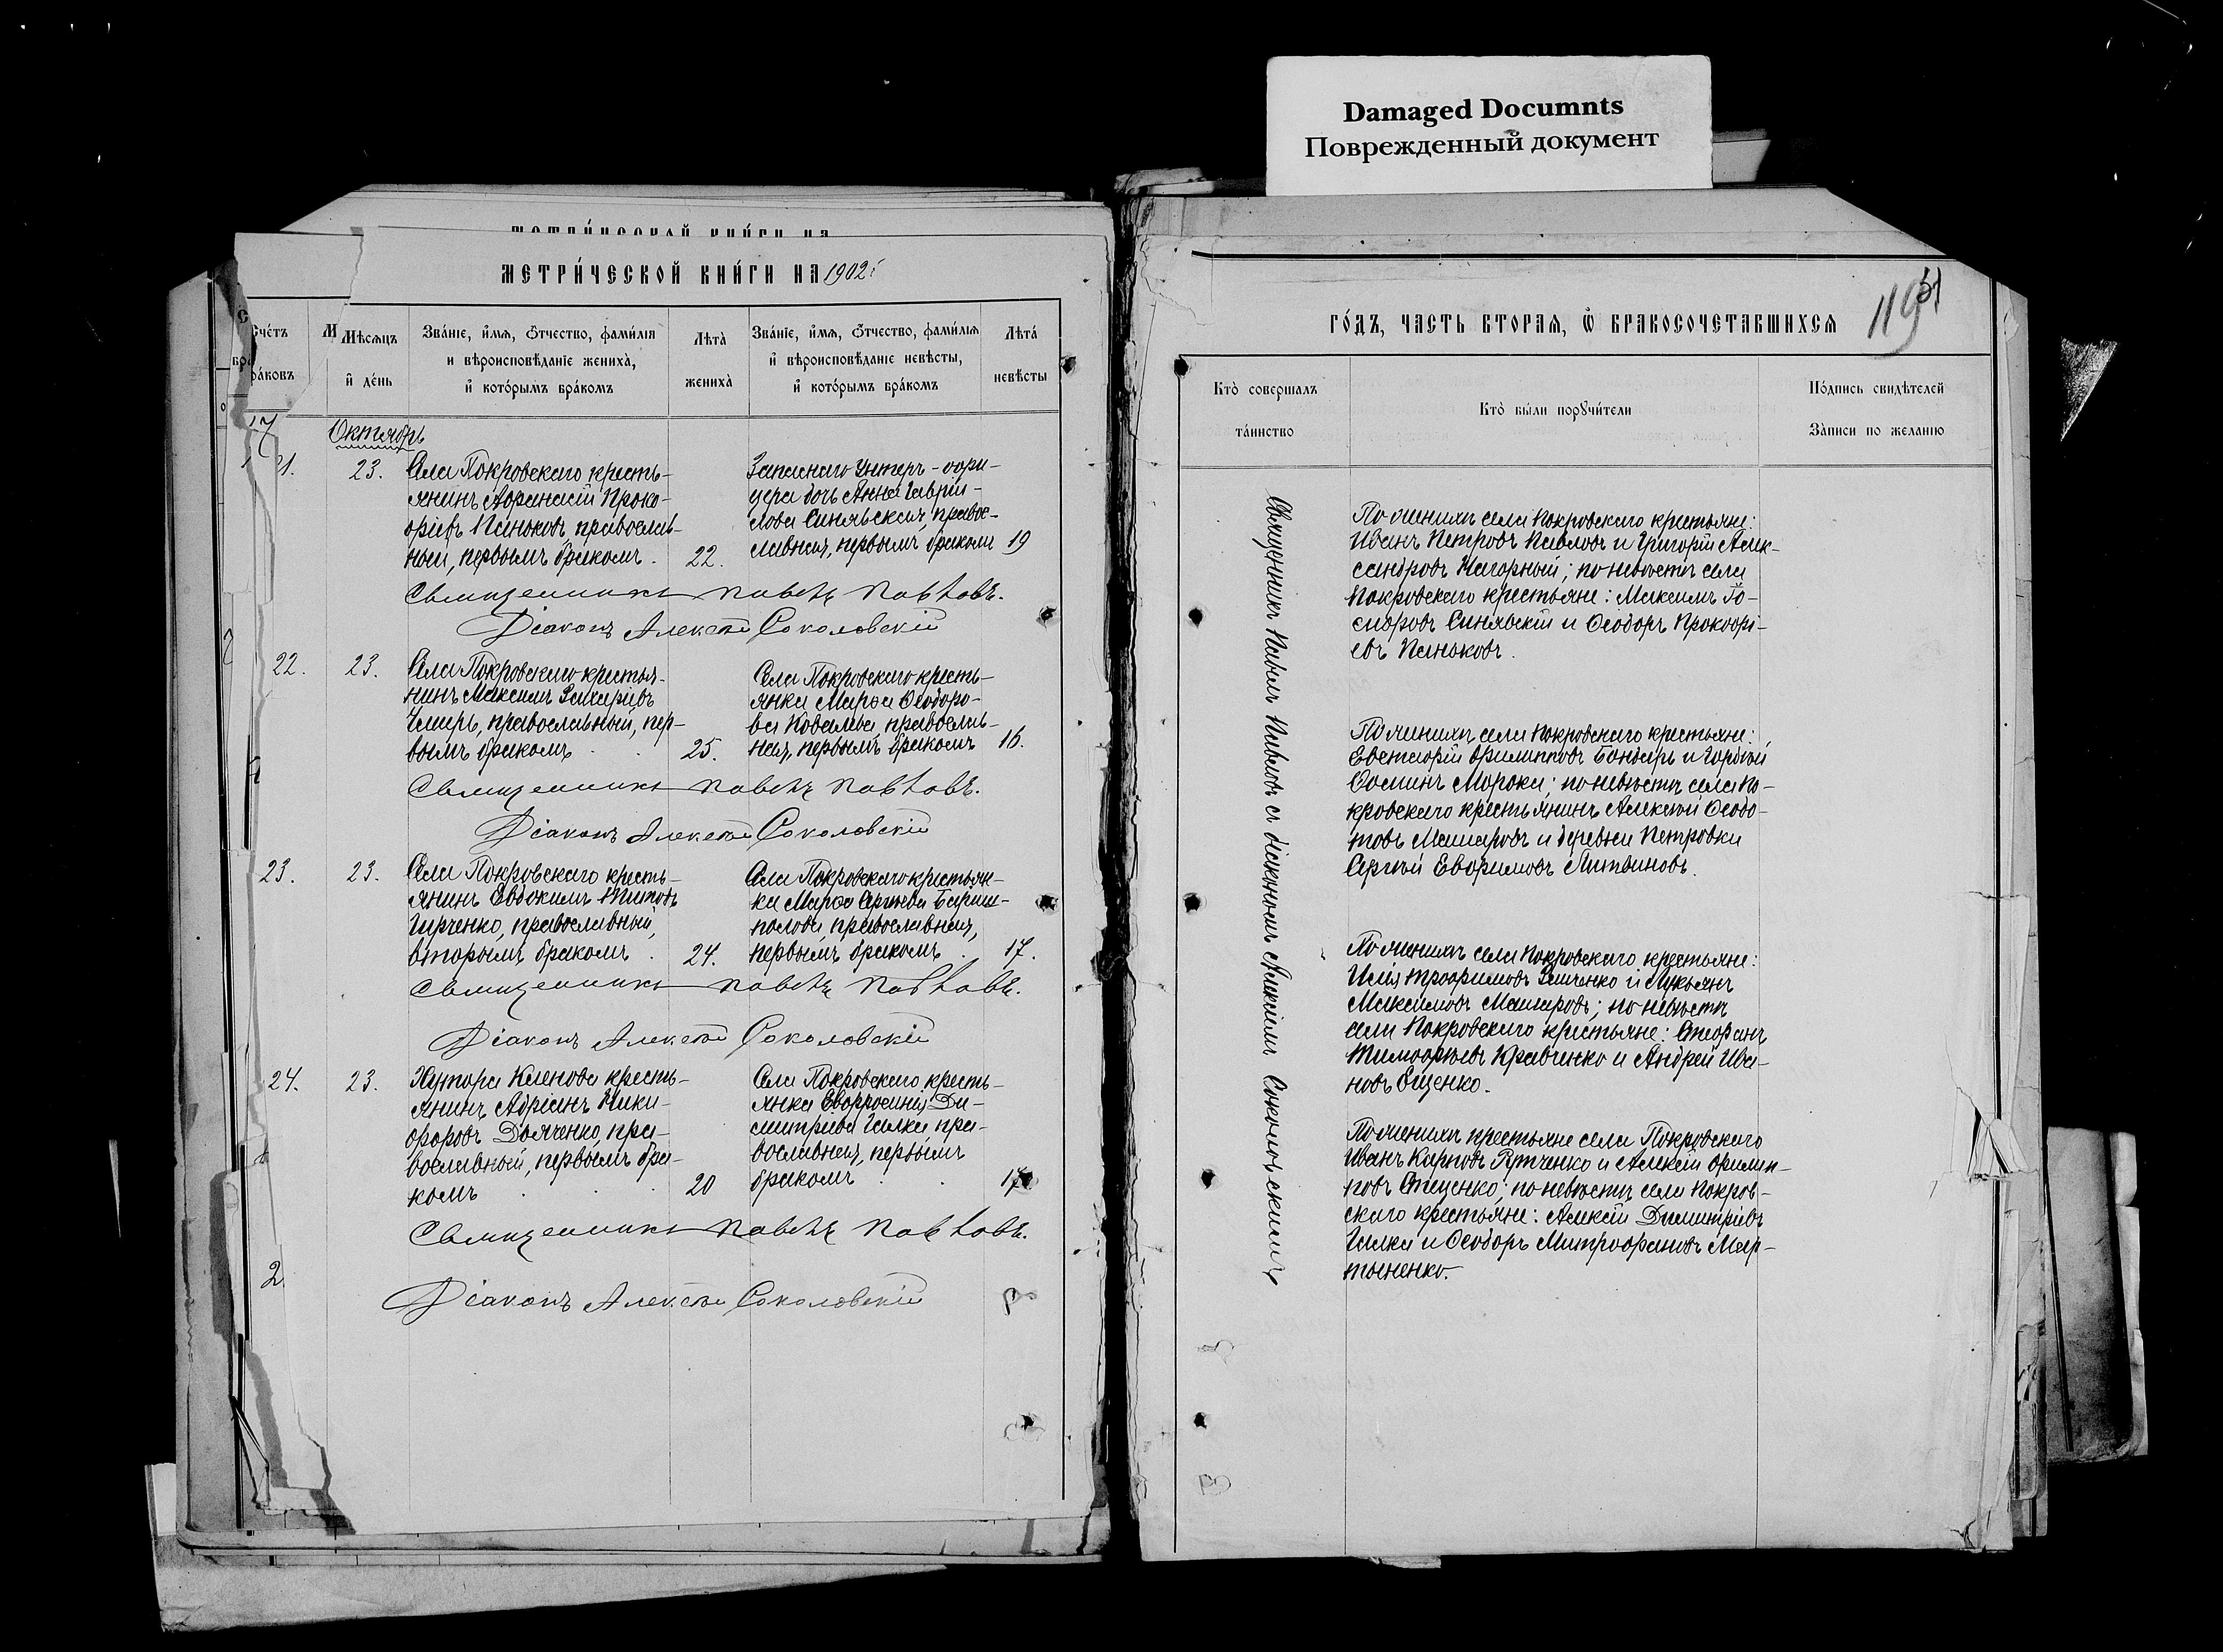 Damaged Documnts
Поврежденный документ
МЕТРИ́ЧЕСКОЙ КНИ́ГИ НА 1902
Счéтъ
браковъ
Мѣсяцъ
и́ де́нь
Зва́нїе, и́мѧ, ѻ҆́тчество, фами́лїѧ
и вѣроисповѣ́данїе жениха̀,
и́ кото́рымъ бра́комъ
Лѣта̀
жениха̀
Зва́нїе, и́мѧ, ѻ҆́тчество, фами́лїѧ
и́ вѣроисповѣ́данїе невѣ́сты,
и́ кото́рымъ бра́комъ
Лѣта́
невѣ́сты
Октябрь
21.
23.
Села Покровскаго кресть-
янинъ Афанасій Проко-
фіевъ Паньковъ, православ-
ный, первымъ бракомъ.
22.
Запаснаго унтеръ-офи-
цера дочь Анна Гаврии-
лова Синявская, правос-
лавная, первымъ бракомъ
19
Священникъ Павелъ Павловъ.
Діаконъ Алексѣй Соколовскій
22.
23.
Села Покровскаго крестья-
нинъ Максимъ Захаріевъ
Чмирь, православный, пер-
вымъ бракомъ
25.
Села Покровскаго кресть-
янка Марѳа Ѳеодоро-
ва Ковалева, православ-
ная, первымъ бракомъ
16.
Священникъ Павелъ Павловъ.
Діаконъ Алексѣй Соколовскій
23.
23.
Села Покровскаго кресть-
янинъ Евдокимъ Титовъ
Гирченко, православный,
вторымъ бракомъ.
24.
Села Покровскаго крестьян-
ка Марѳа Сергѣева Бариш-
полова православная,
первымъ бракомъ.
17.
Священникъ Павелъ Павловъ.
Діаконъ Алексѣй Соколовскій
24.
23.
Хутора Кленова кресть-
янинъ Адріанъ Ники-
форовъ Дьяченко, пра-
вославный, первымъ бра-
комъ
20
Села Покровскаго кресть-
янка Евфросинія Ди-
митріева Галка пра-
вославная, первымъ
бракомъ
17
Священникъ Павелъ Павловъ.
Діаконъ Алексѣй Соколовскій
2.
ГО́ДЪ, ЧАСТЬ ВТОРАЯ, Ѡ҆ БРАКОСОЧЕТАВШИХСѦ
119
51
Кто̀ соверша́лъ
та́инство
Кто̀ бы́ли порꙋчи́тели
По́дпись свидѣ́телей
За́писи по жела́нїю
Священникъ Павелъ Павловъ съ діакономъ Алексѣемъ Соколовскимъ
По женихѣ села Покровскаго крестьяне:
Иванъ Петровъ Павловъ и Григорій Алек-
сандровъ Нагорный; по невѣстѣ села
Покровскаго крестьяне: Максимъ
Синявскій и Ѳеодоръ Прокофі-
евъ Паньковъ.
По женихѣ села Покровскаго крестьяне:
Евстафій Филипповъ Бондарь и Гордѣй
Ѳоминъ Морока; по невѣстѣ села По-
кровскаго крестьянинъ Алексѣй Ѳеодо-
товъ Машаровъ и деревни Петровки
Сергѣй Евфимовъ Литвиновъ.
По женихѣ села Покровскаго крестьяне:
Илія Трофимовъ и Лукьянъ
Максимовъ Машаровъ; по невѣстѣ
села Покровскаго крестьяне: Стефанъ
Тимофѣевъ Кравченко и Андрей Ива-
новъ Ещенко.
По женихѣ крестьяне села Покровскаго
Иванъ Карповъ Рятченко и Алексѣй Филип-
повъ Стеценко; по невѣстѣ села Покров-
скаго крестьяне: Алексѣй Димитріевъ
Галка и Ѳеодоръ Митрофановъ Мар-
тыненко.